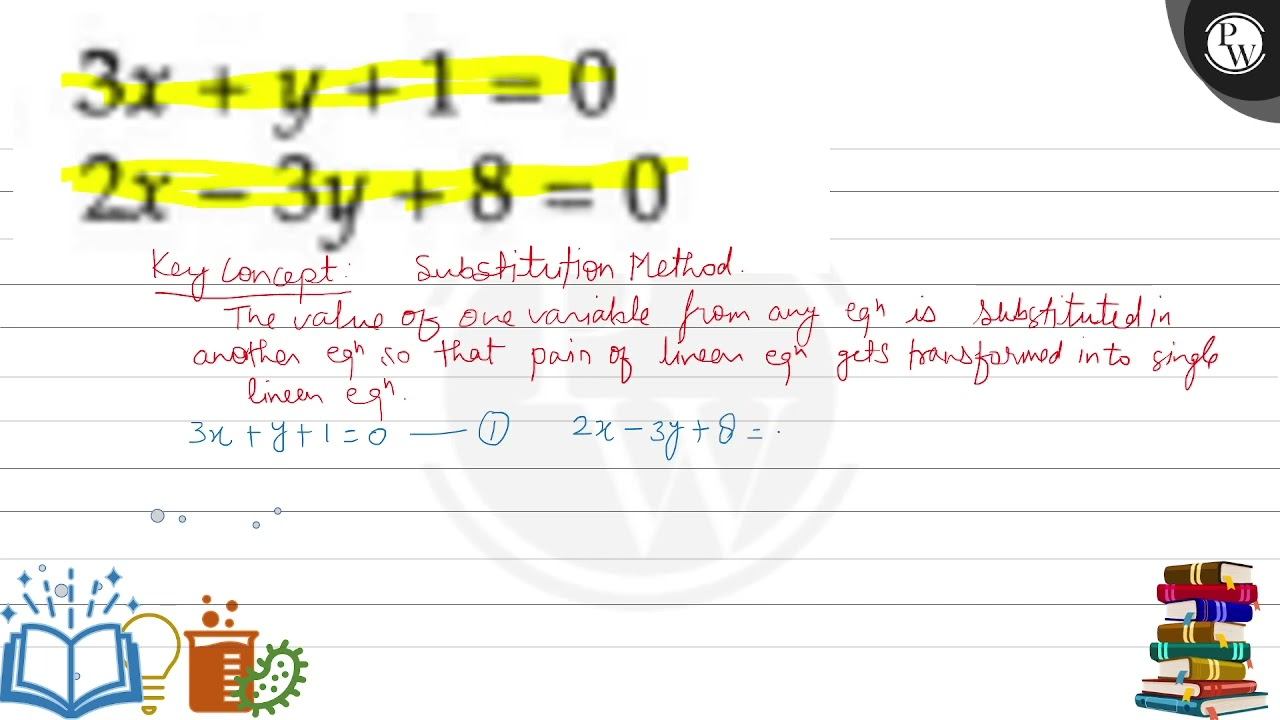 3x + y + 1 = 0
2x − 3y + 8 = 0
Key Concept: Substitution Method.
The value of one variable from any eqⁿ is substituted in
another eqⁿ so that pair of linear eqⁿ gets transformed into single
linear eqⁿ.
3x + y + 1 = 0 — ① 2x − 3y + 8 =
PW
PW